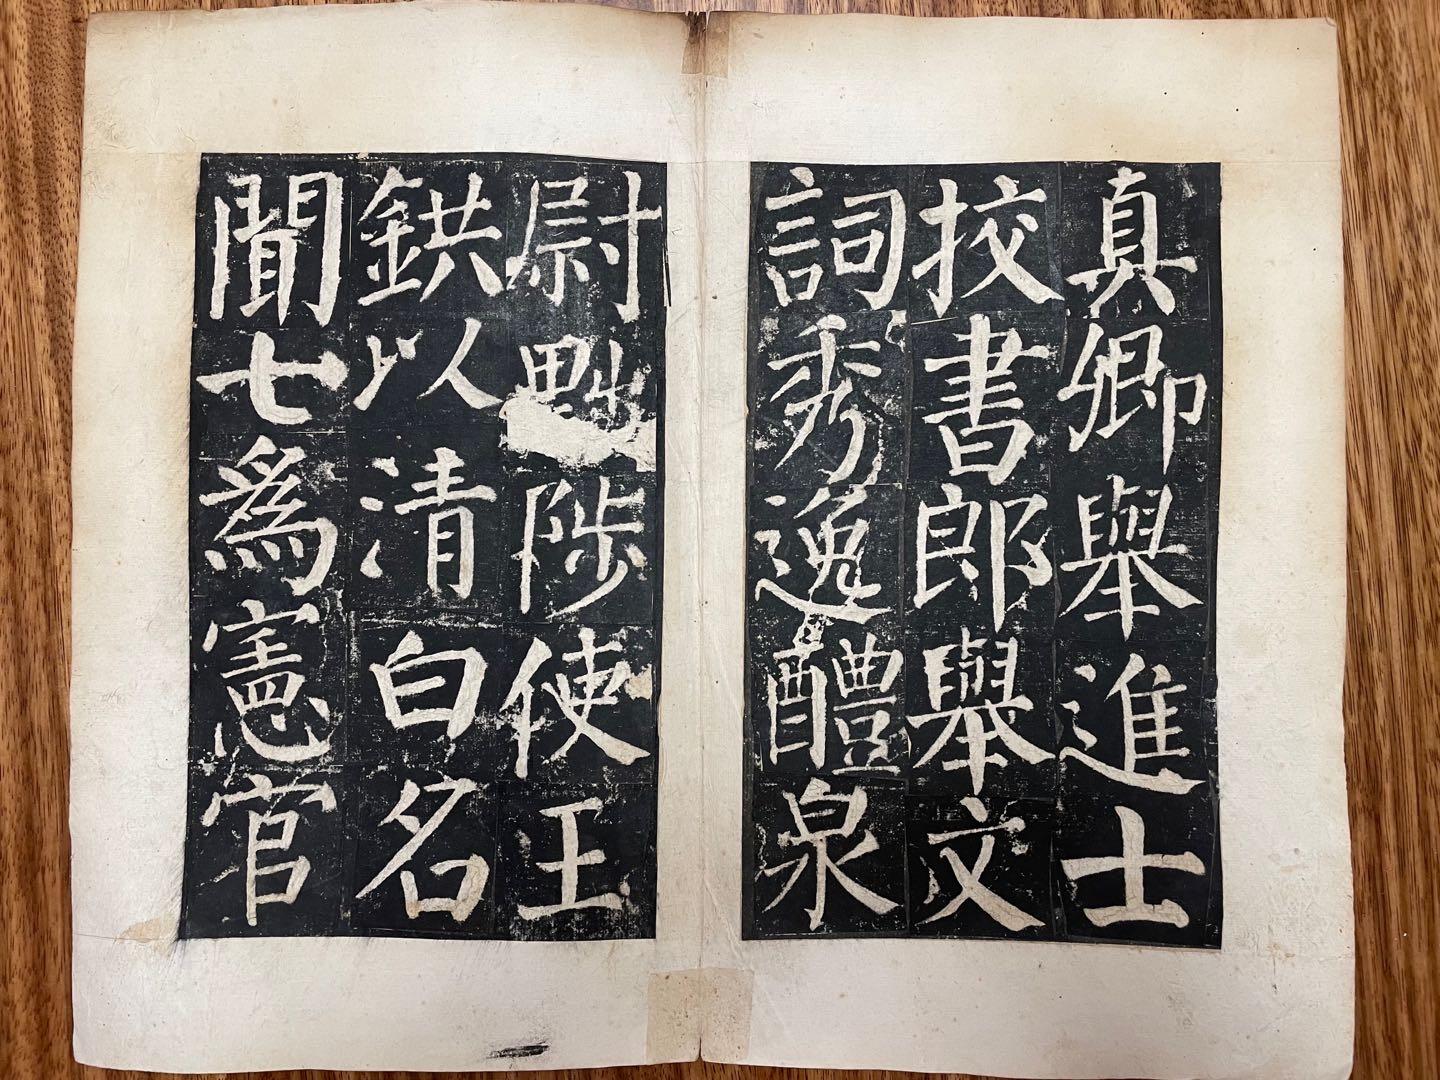 真卿舉進士
挍書郎舉文
詞秀逸醴泉
尉黜陟使王
鉷以清白名
聞七爲憲官